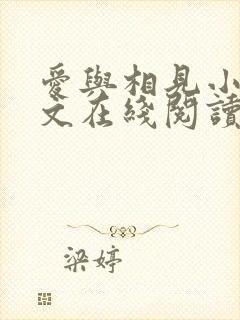 愛與相見小
文在綫閱讀
梁婷